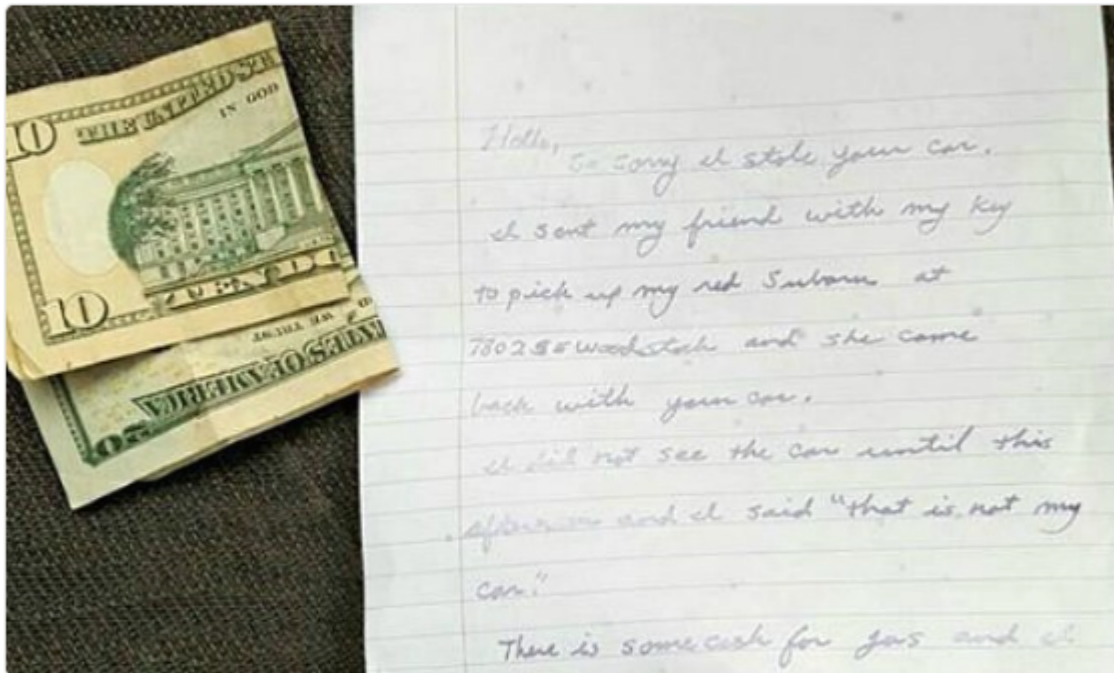 10 THE UNITED STATE
IN GOD
TEN DO
10
WE TRUST
TATES OF AMERICA
20
Hello,
So sorry I stole your car.
I sent my friend with my key
to pick up my red Subaru at
7802 SE Woodstock and she came
back with your car.
I did not see the car until this
afternoon and I said "that is not my
car."
There is some cash for gas and I